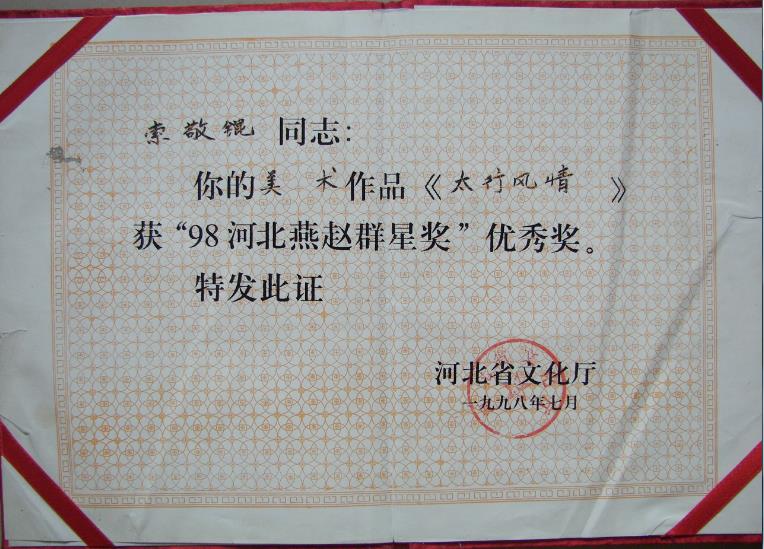 索敬锟 同志：
你的美术作品《太行风情》
获“98河北燕赵群星奖”优秀奖。
特发此证
河北省文化厅
一九九八年七月